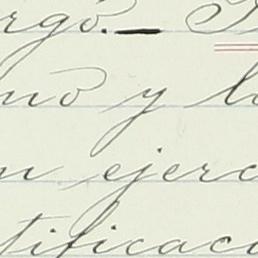 rgo.
mo y l
n ejerc
tificac